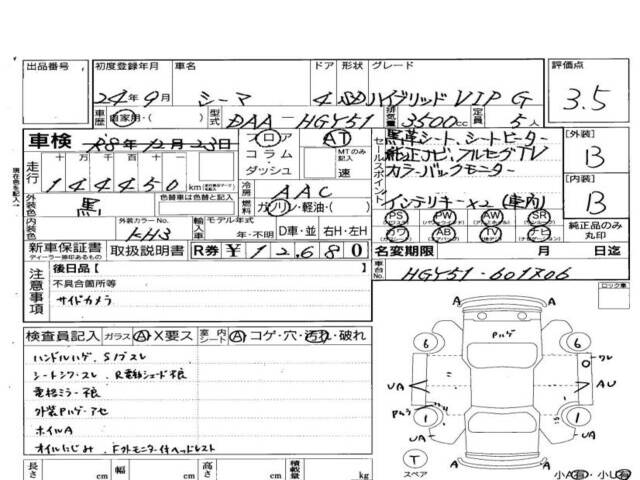 出品番号 初度登録年月 車名 ドア 形状 グレード 評価点
24年9月 シーマ 4 SD ハイブリッド VIP G 3.5
車歴 自家用・( ) 型式 DAA-HGY51 排気量 3500cc 定員 5人
車検 R8年12月23日 フロア AT MTのみ記入 速
コラム
ダッシュ
セールスポイント
黒革シート、シートヒーター
純正ナビ、フルセグTV
カラーバックモニター
インテリキー×2(車内)
[外装] B
[内装] B
現在色を記入
走行 十 万 千 百 十 144450 km
冷房 AAC
外装色 黒 色替車は色替と記入 燃料 ガソリン・軽油・( )
PS PW AW SR
カワ AB TV ナビ
純正品のみ丸印
内装色 外装カラーNo. KH3 輸入車 モデル年式 年・不明 D車・並 右H・左H
新車保証書 ディーラー捺印あるもの 取扱説明書 R券 ¥12,680 名変期限 月 日迄
車台No. HGY51-601
注意事項 後日品[ ]
不具合箇所等
サイドカメラ
ロック車
検査員記入 ガラス A・X要ス 室内シート A・コゲ・穴・汚れ・破れ
ハンドルハゲ、Sノブスレ
シートシワ・スレ、R電動シェード不良
電格ミラー不良
外装Pハゲ・アセ
ホイルA
オイルにじみ、F外モニター付ヘッドレスト
長さ cm 幅 cm 高さ cm 積載量 kg
A A
Pハゲ
6 6
ワレ
UA A AU
Pハゲ
1 1
UA UA
T
スペア
A A
小A有・小U有